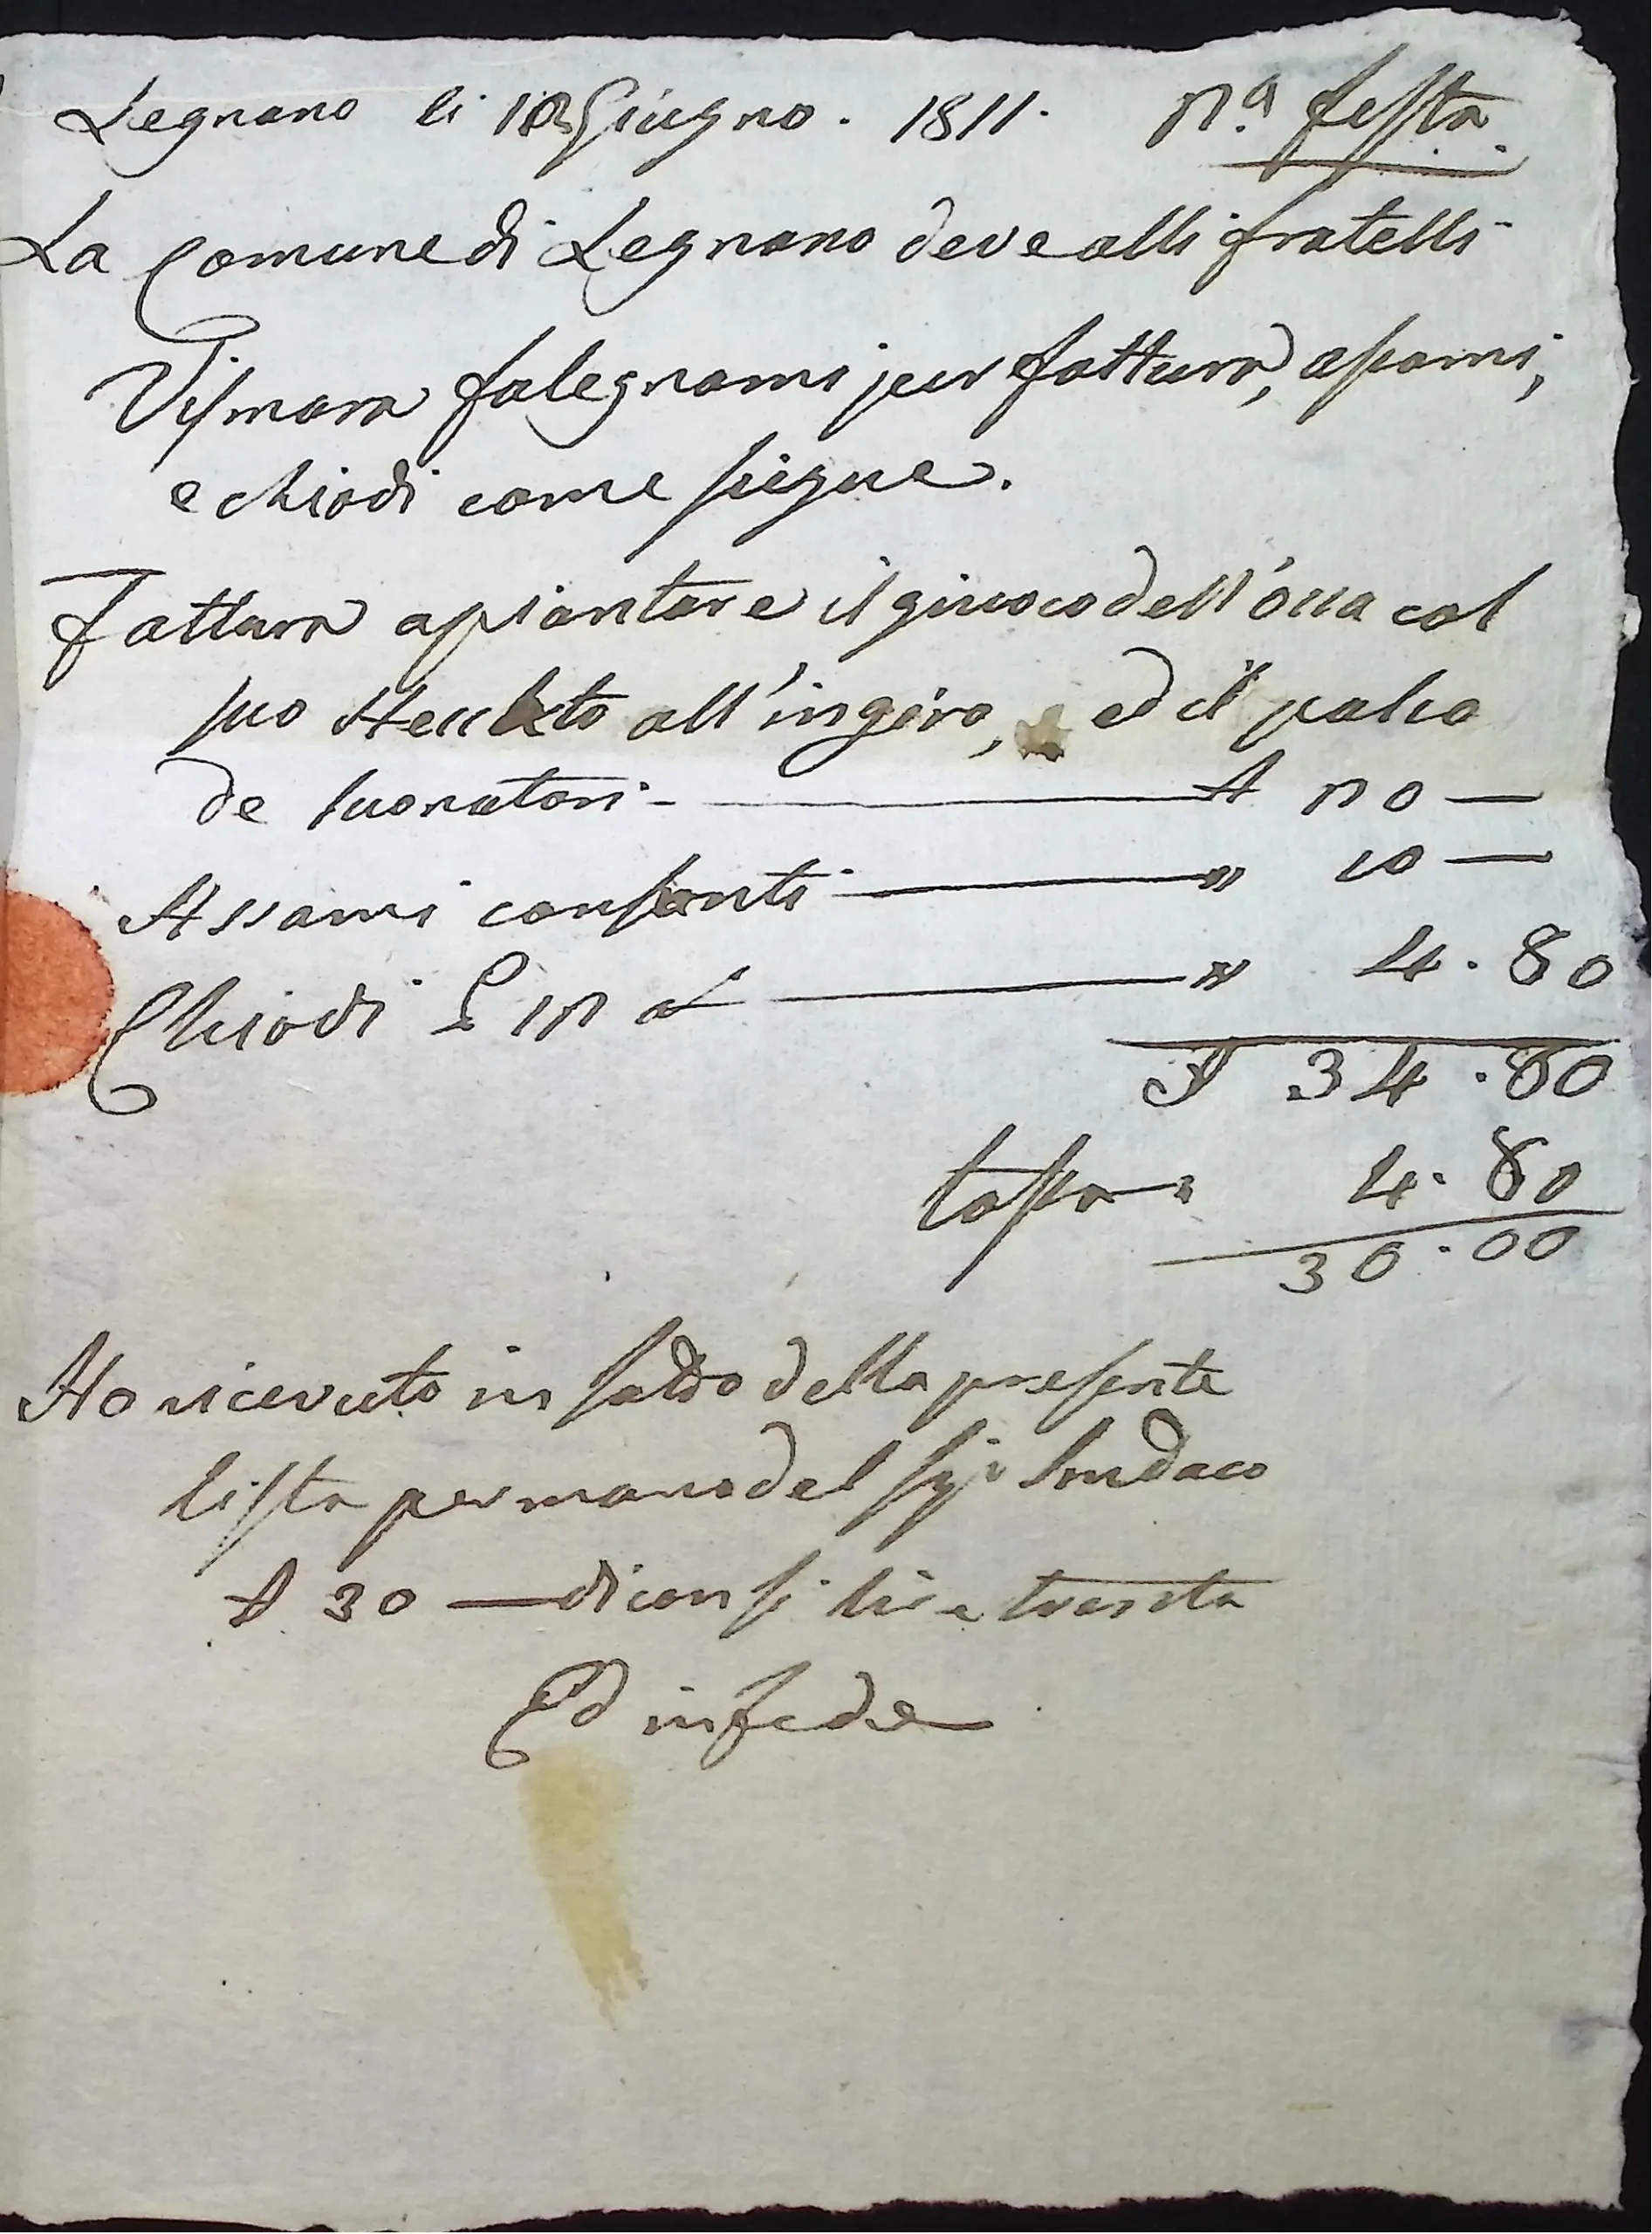 Legnano li 12 Giugno. 1811. 2.a festa
La Comune di Legnano deve alli fratelli
Vismara falegnami per fattura, assami,
e chiodi come siegue.
Fattura a piantare il giuoco dell'occa col
suo steccato all'ingiro, ed il palco
de suonatori 20
Assami consonti " 10
Chiodi 12 " 4.80
34.80
tassa 4.80
30.00
Ho ricevuto in saldo della presente
lista per mano del Sigr Sindaco
30 diconsi lire trenta
Ed in fede